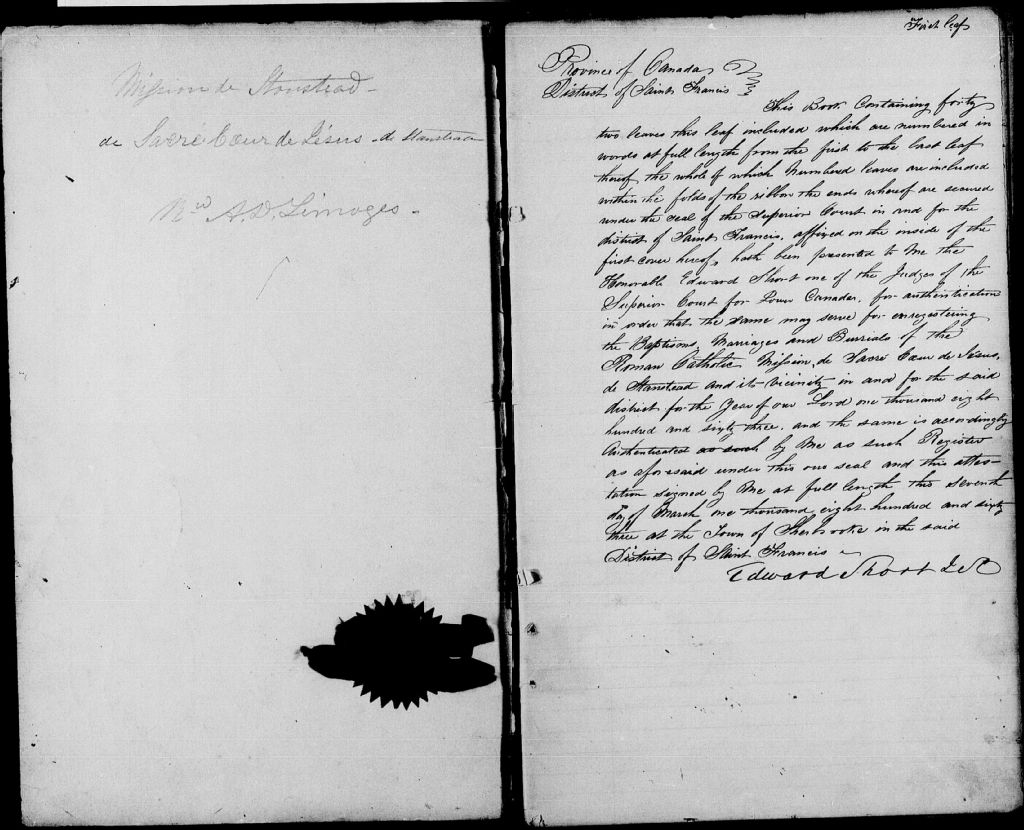 Mission de Stanstead
de Sacré Cœur de Jésus de Stanstead
Rev A.D. Limoges
First leaf
Province of Canada
District of Saint Francis
This Book Containing forty
two leaves this leaf included which are numbered in
words at full length from the first to the last leaf
thereof the whole of which numbered leaves are included
within the folds of the ribbon the ends whereof are secured
under the seal of the Superior Court in and for the
district of Saint Francis, affixed on the inside of the
first cover hereof, hath been presented to Me the
Honorable Edward Short one of the Judges of the
Superior Court for Lower Canada, for authentication
in order that the same may serve for enregistering
the Baptisms, Marriages and Burrials of the
Roman Catholic Mission, de Sacré Cœur de Jésus,
de Stanstead and its vicinity in and for the said
district for the Year of our Lord one thousand eight
hundred and sixty three, and the same is accordingly
Authenticated as such by Me as such Register
as aforesaid under this our seal and this attes-
tation signed by Me at full length this seventh
day of March one thousand eight hundred and sixty
three at the Town of Sherbrooke in the said
District of Saint Francis
Edward Short